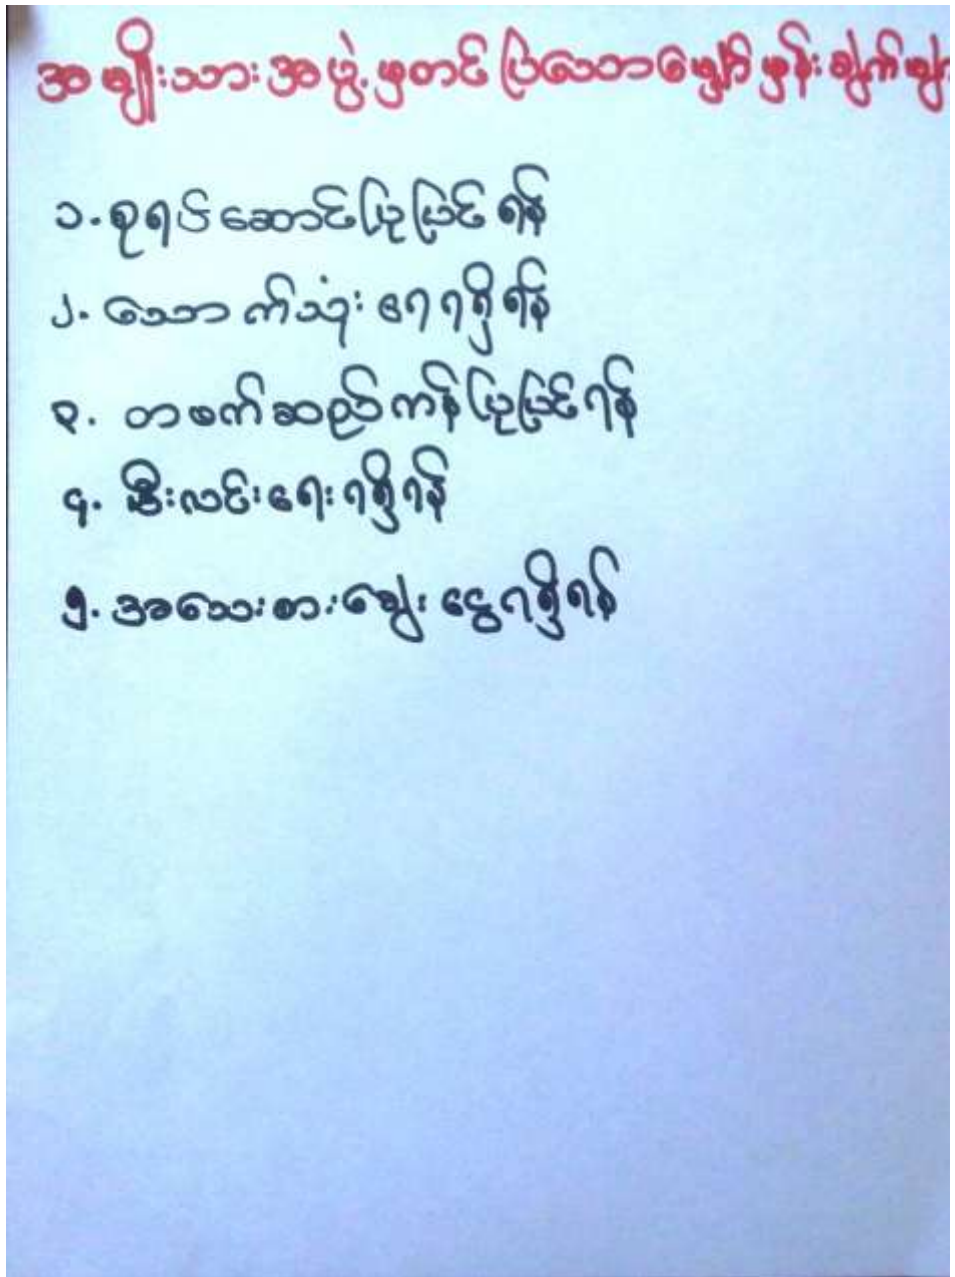 အမျိုးသားအဖွဲ့မှတင်ပြသောမျှော်မှန်းချက်များ
၁. စုရပ်ဆောင်ပြုပြင်ရန်
၂. သောက်သုံးရေရရှိရန်
၃. တဖက်ဆည်ကန်ပြုပြင်ရန်
၄. မီးလင်းရေးရရှိရန်
၅. အသေးစားချေးငွေရရှိရန်